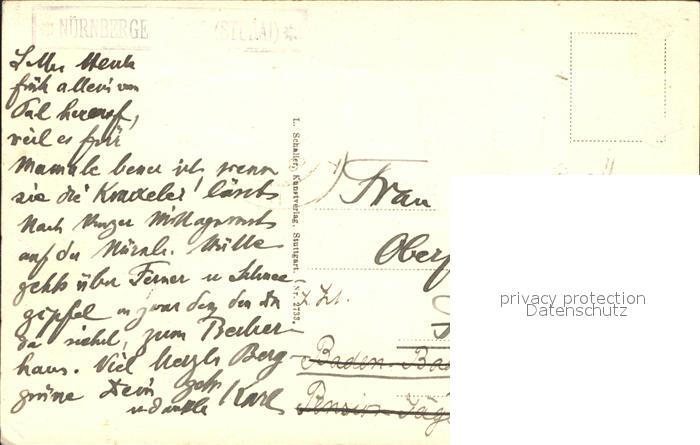 NÜRNBERGE (STUBAI)
L. Ster Heute
früh allein vom
Tal herauf,
weil es für
Mamale besser ist, wenn
sie die Kraxelei lässt
Nach kurzer Mittagsrast
auf der Nürnb. Hütte
gehts über Ferner u Schnee
gipfel u zwar den den Du
da siehst, zum Becher-
haus. Viel herzl Berg-
grüße Dein
Karl
L. Schaller, Kunstverlag, Stuttgart. (Nr. 2733.)
Frau
Ober
z. Zt.
Baden-Bad
Pension Jäg
privacy protection
Datenschutz